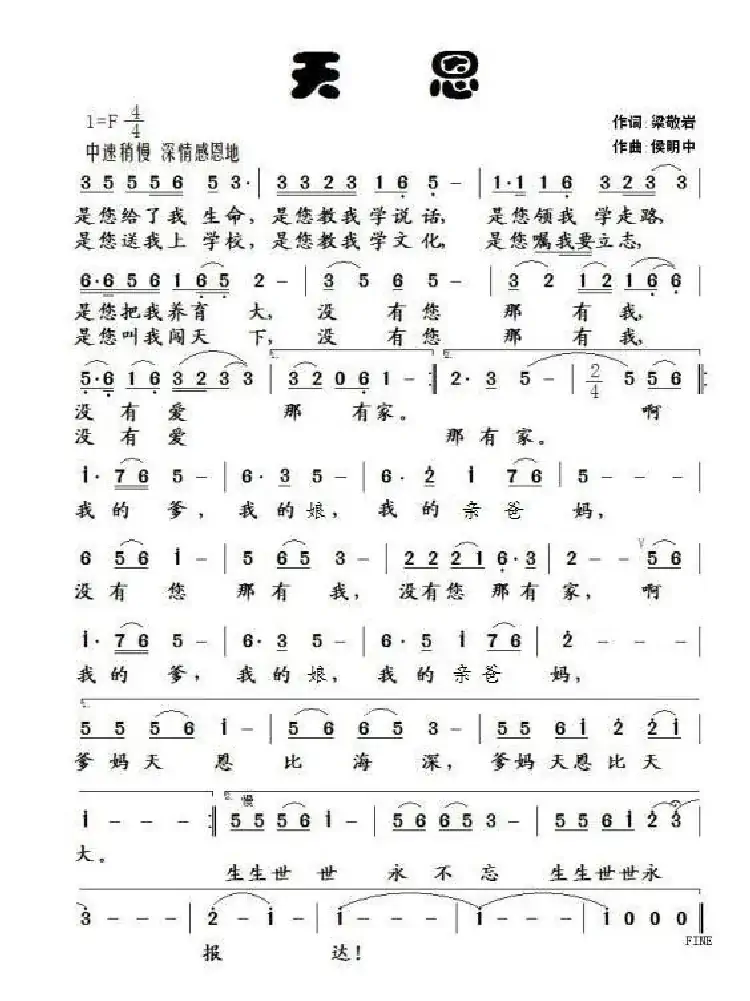 天 恩
1=F 4/4
作词:梁敬岩
中速稍慢 深情感恩地
作曲:侯明中
3 5 5 5 6 5 3· | 3 3 2 3 1 6 5 - | 1·1 1 6 3 2 3 3
是您给了我 生命, 是您教我学说话, 是您领我 学走路,
是您送我上 学校, 是您教我学文化, 是您嘱我要立志,
6·6 5 6 1 6 5 2 - | 3 5 6 5 - | 3 2 1 2 1 6 6 |
是您把我养育 大, 没 有您 那 有我,
是您叫我闯天 下, 没 有您 那 有我,
5·6 1 6 3 2 3 3 | 3 2 0 6 1 - :| 2· 3 5 - | 2/4 5 5 6 |:
没 有 爱 那 有家。 啊
没 有 爱 那 有 家。
1· 7 6 5 - | 6· 3 5 - | 6· 2 1 7 6 | 5 - - -
我 的 爹, 我 的 娘, 我 的 亲 爸 妈,
6 5 6 1 - | 5 6 5 3 - | 2 2 2 1 6·3 | 2 - - 5 6
没 有 您 那 有 我, 没有您 那有家, 啊
1· 7 6 5 - | 6· 3 5 - | 6· 5 1 7 6 | 2 - - -
我 的 爹, 我 的 娘, 我 的 亲 爸 妈,
5 5 5 6 1 - | 5 6 6 5 3 - | 5 5 6 1 2 2 1
爹 妈 天 恩 比 海 深, 爹妈天恩比天
1 - - - :| 5 5 5 6 1 - | 5 6 6 5 3 - | 5 5 6 1 2 3
慢
大。 生生世 世 永 不 忘 生生世世永
3 - - - | 2 - 1 - | 1 - - - | 1 - - - | 1 0 0 0 ‖
报 达!
FINE